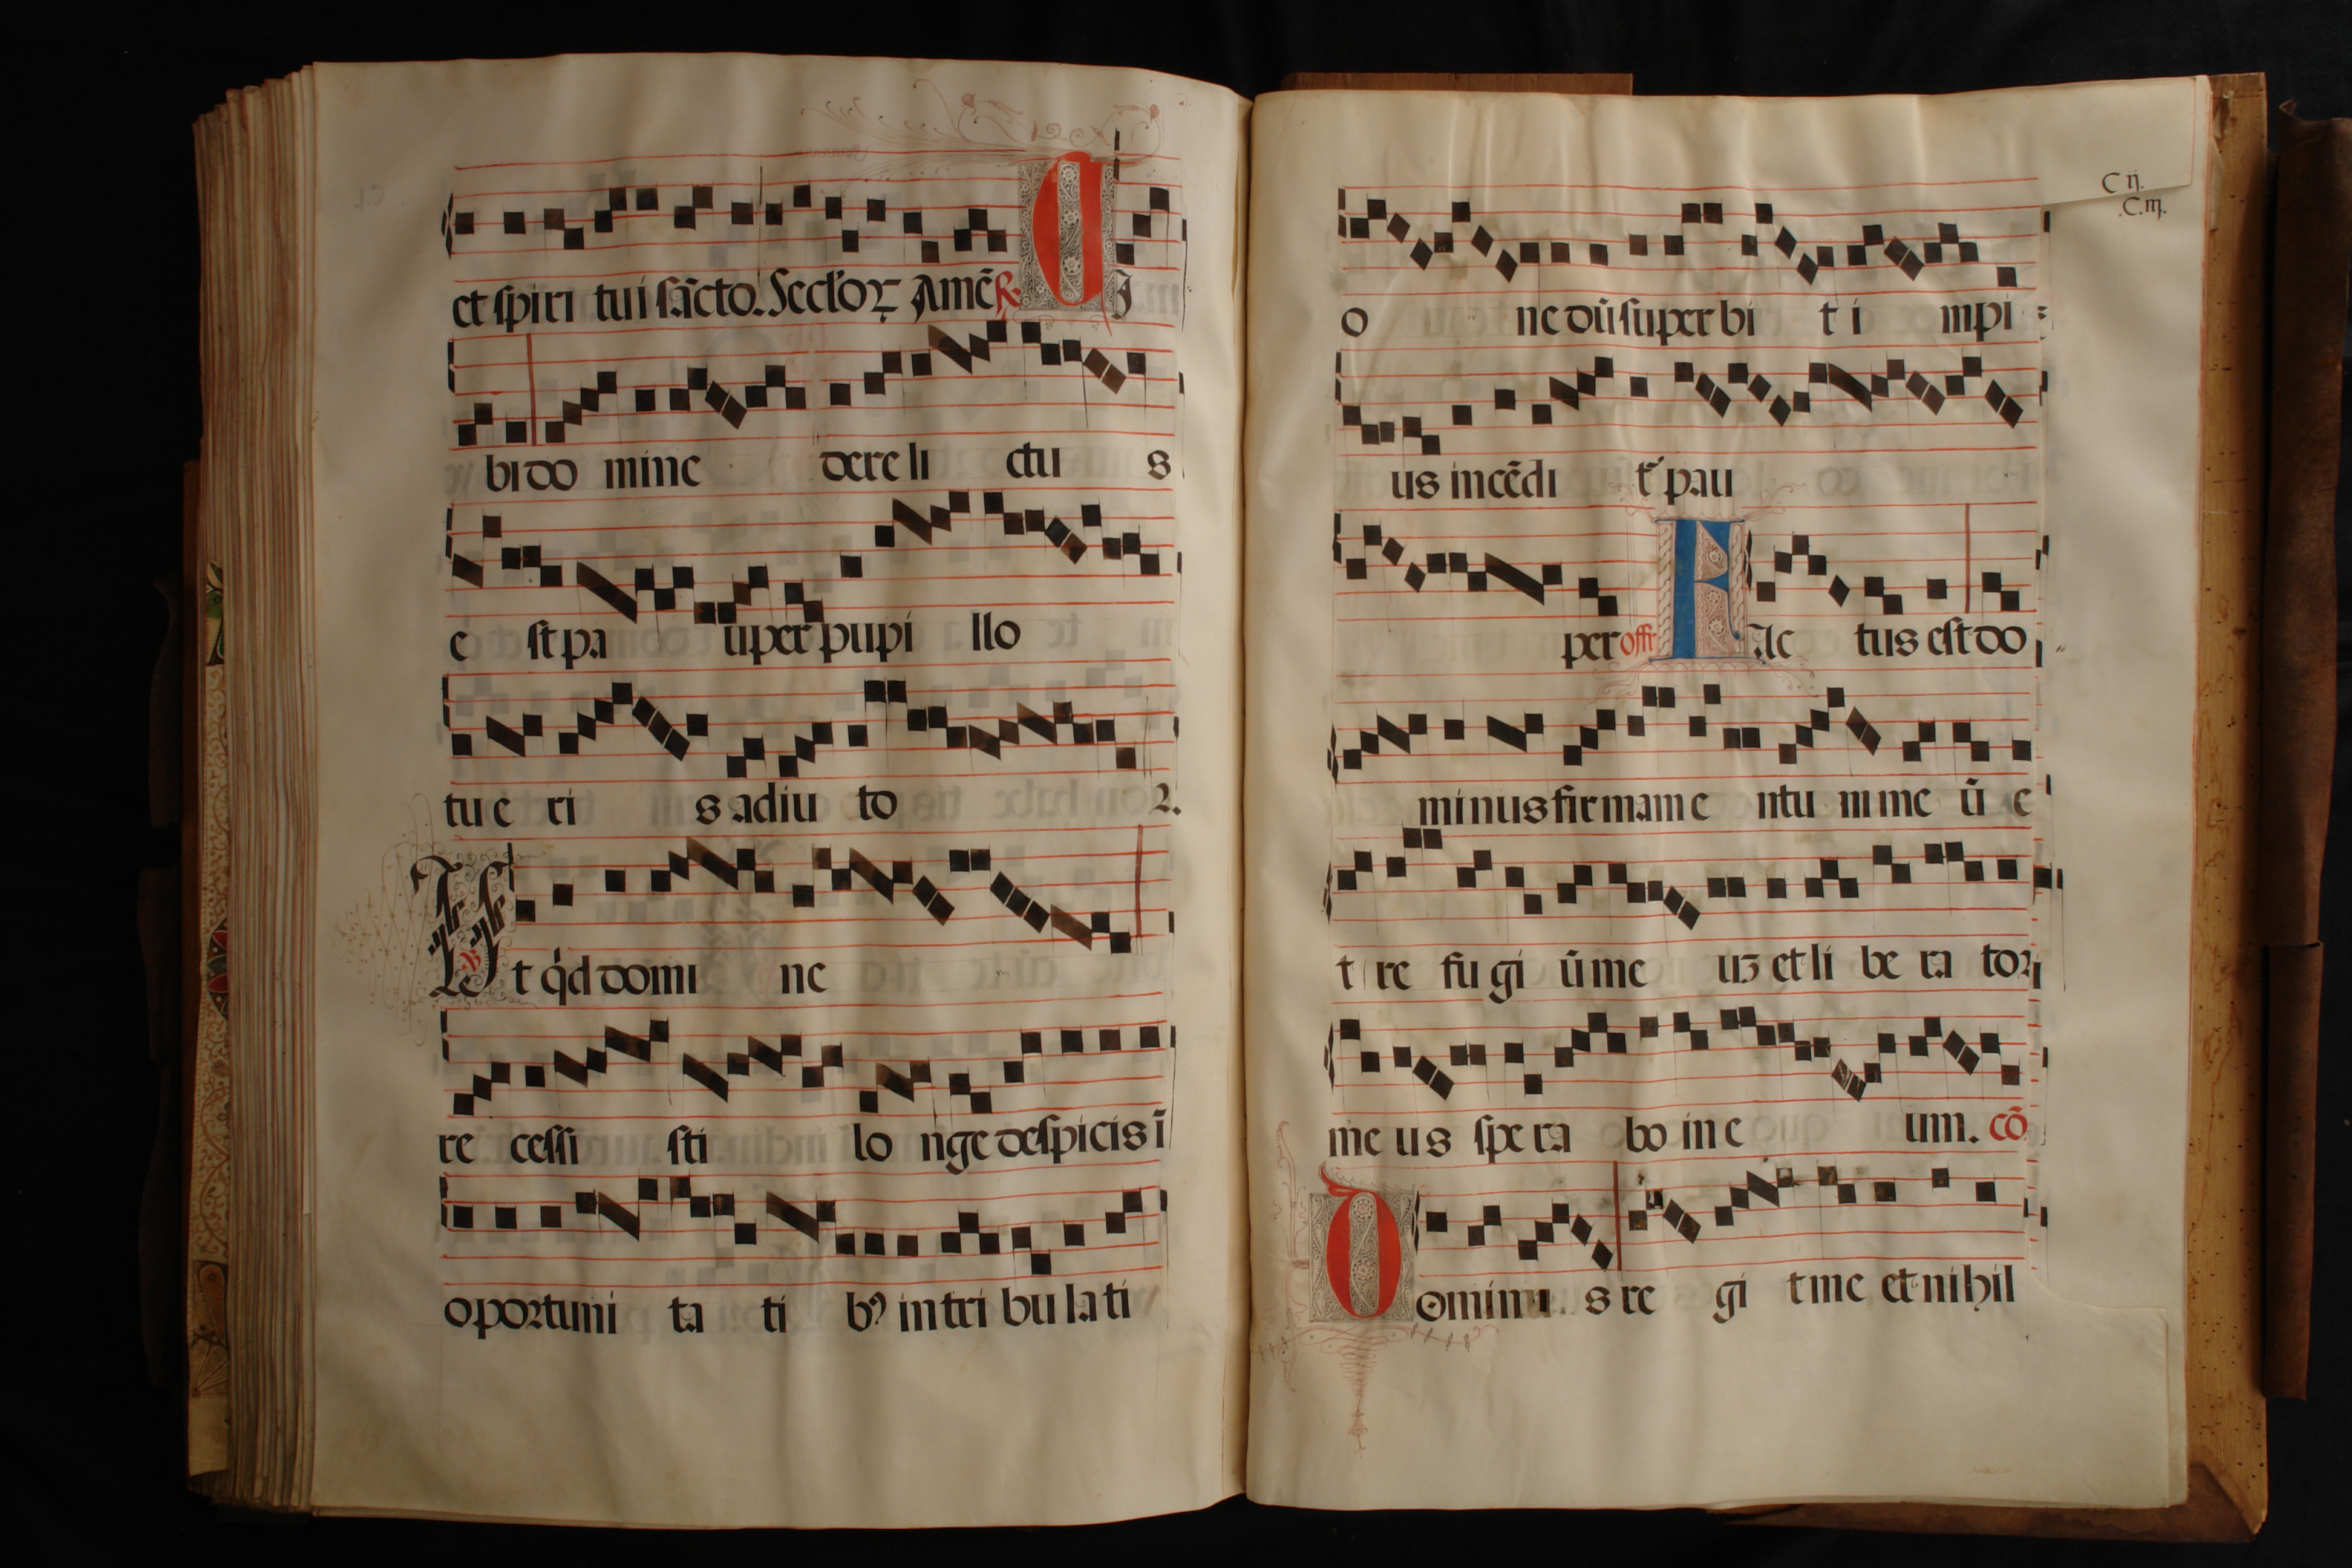 et spiri tui sãcto. Seclo’ꝝ Amẽ ℟. TI
bi do mine dere li ctu s
e st pa uper pupi llo
tu e ri s adiu to r.
℣ Ut q́d domi ne
re cessi sti lo nge despicis ĩ
oportuni ta ti bꝰ in tri bu la ti
C ij.
.C.iij.
o ne dũ super bi t i mpi
us incẽdi tᷣ pau
per offr̃ FAc tus est do
minus fir mam e ntu m me ũ e
t re fu gi ũ me uꝫ et li be ra tor
me us spe ra bo in e um. cõ
Dominu s re gi t me et nihil